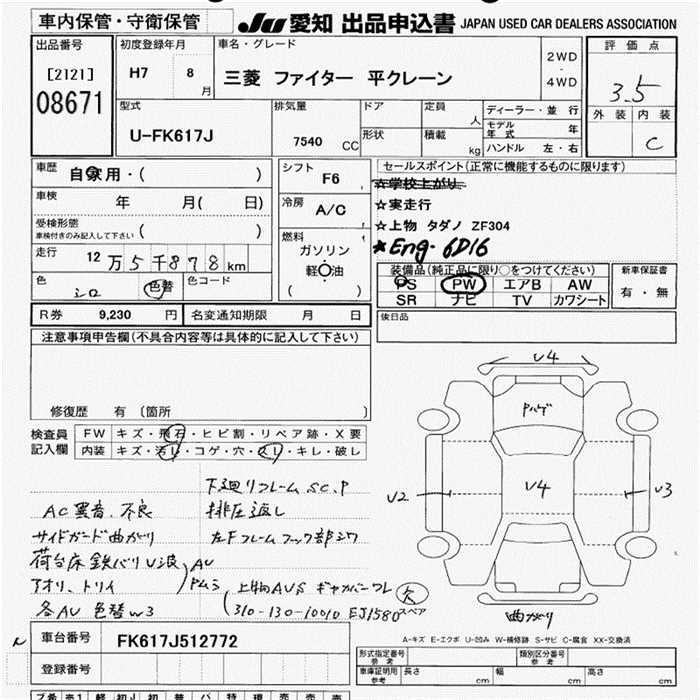 車内保管・守衛保管
JU 愛知 出品申込書 JAPAN USED CAR DEALERS ASSOCIATION
出品番号
[2121]
08671
初度登録年月
H7 8 月
車名・グレード
三菱 ファイター 平クレーン
2WD
・
4WD
評価点
3.5
外装 内装
C
型式
U-FK617J
排気量
7540 CC
ドア
形状
定員
人
積載
kg
ディーラー・並行
モデル年式 年
ハンドル 左・右
車歴
自家用・( )
車検
年 月( 日)
受検形態
車検付きのみ記入して下さい ( )
走行
12万5千878km
色
シロ
色替
色コード
シフト
F6
冷房
A/C
燃料
ガソリン
軽油
( )
セールスポイント(正常に機能するものに限ります)
☆学校上がり
☆実走行
☆上物 タダノ ZF304
★Eng・6D16
装備品(純正品に限り○をつけてください)
PS PW エアB AW
SR ナビ TV カワシート
新車保証書
有・無
後日品
R券 9,230 円
名変通知期限 月 日
注意事項申告欄(不具合内容等は具体的に記入して下さい)
修復歴 有 〔箇所 〕
検査員記入欄
FW キズ・飛石・ヒビ割・リペア跡・X要
内装 キズ・汚レ・コゲ・穴・スレ・キレ・破レ
下廻リフレームSC.P
AC異音.不良
排圧返し
サイドガード曲がり
左Fフレームフック部シワ
荷台床鉄バリU波
アオリ、トリイ
AU
各AU 色替W3
上物AUS
310-130-10010 EJ1580
欠
スペア
U4
Pハゲ
U2
U4
U3
曲がり
A-キズ E-エクボ U-凹み W-補修跡 S-サビ C-腐食 XX-交換済
車台番号 FK617J512772
登録番号
形式指定番号
参考
類別区分番号
参考
車庫証明用
参考
長さ cm
幅 cm
高さ cm